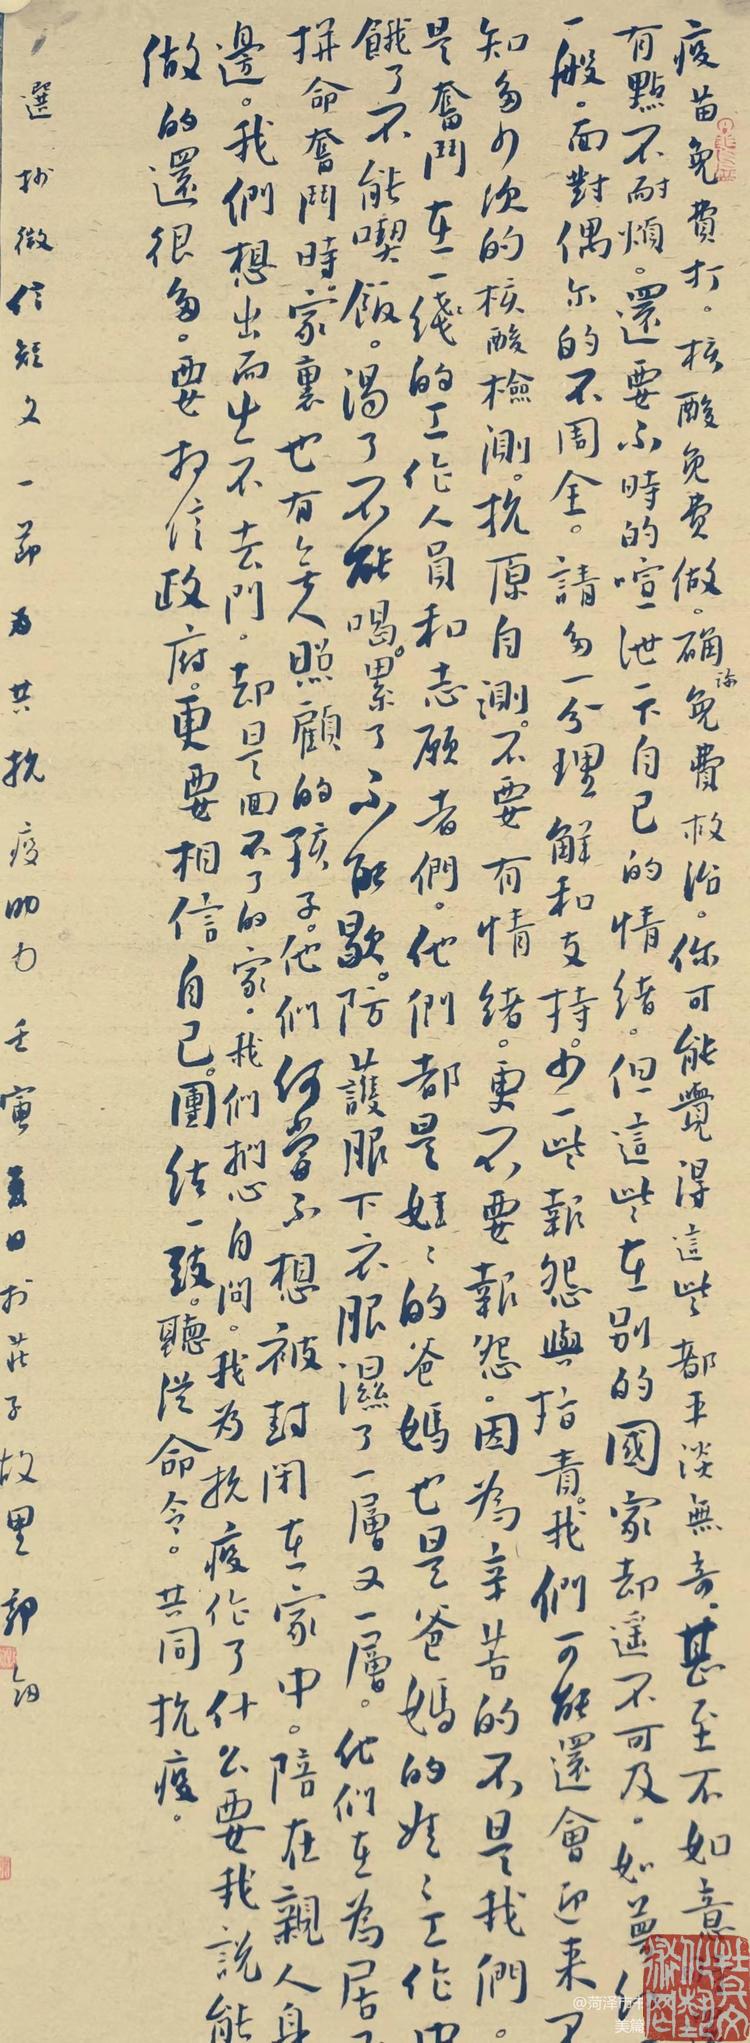 疫苗免費打。核酸免費做。确診免費救治。你可能覺得這些都平淡無奇。甚至不如意
有點不耐煩。還要不時的喧泄下自己的情绪。但這些在别的國家却遥不可及。如夢
一般。面對偶尔的不周全。請多一分理解和支持。少一些報怨與指責。我們可能還會迎来不
知多少次的核酸檢測。抗原自測。不要有情绪。更不要報怨。因為辛苦的不是我們。
是奮鬥在一綫的工作人員和志願者們。他們都是娃〻的爸媽也是爸媽的娃〻工作中
餓了不能喫飯。渴了不能喝。累了不能歇。防護服下衣服濕了一層又一層。他们在為居
拼命奮鬥時。家裏也有無人照顧的孩子。他们何嘗不想被封閉在家中。陪在親人身
邊。我們想出而出不去門。却是回不了的家。我们捫心自問。我為抗疫作了什么要我說能
做的還很多。要相信政府。更要相信自己。團结一致。聽從命令。共同抗疫。
選抄微信短文一節為共抗疫助力壬寅夏日於莊子故里郭
@菏泽市书
美篇